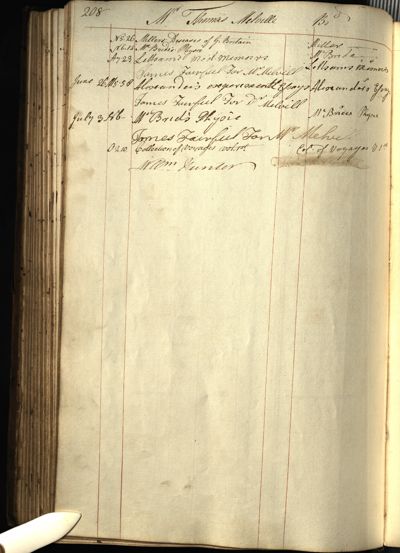 208 Mr Thomas Melville Brd
N5.26 Millers Diseases of G. Britain Miller
Mc Brides Physic
Lettsoms Med Memoirs Lettsoms memoirs
James Fairfull For Mr Melvill
June 26 Alexander's experimental Essays Alexanders Essay
James Fairfull For Dr Melvill
July 3 Mc Brid's Physic Mc Brides Physic
James Fairfull For Mr
Collection of Voyages vol 1st Col. of Voyages V 1st
Wm Hunter